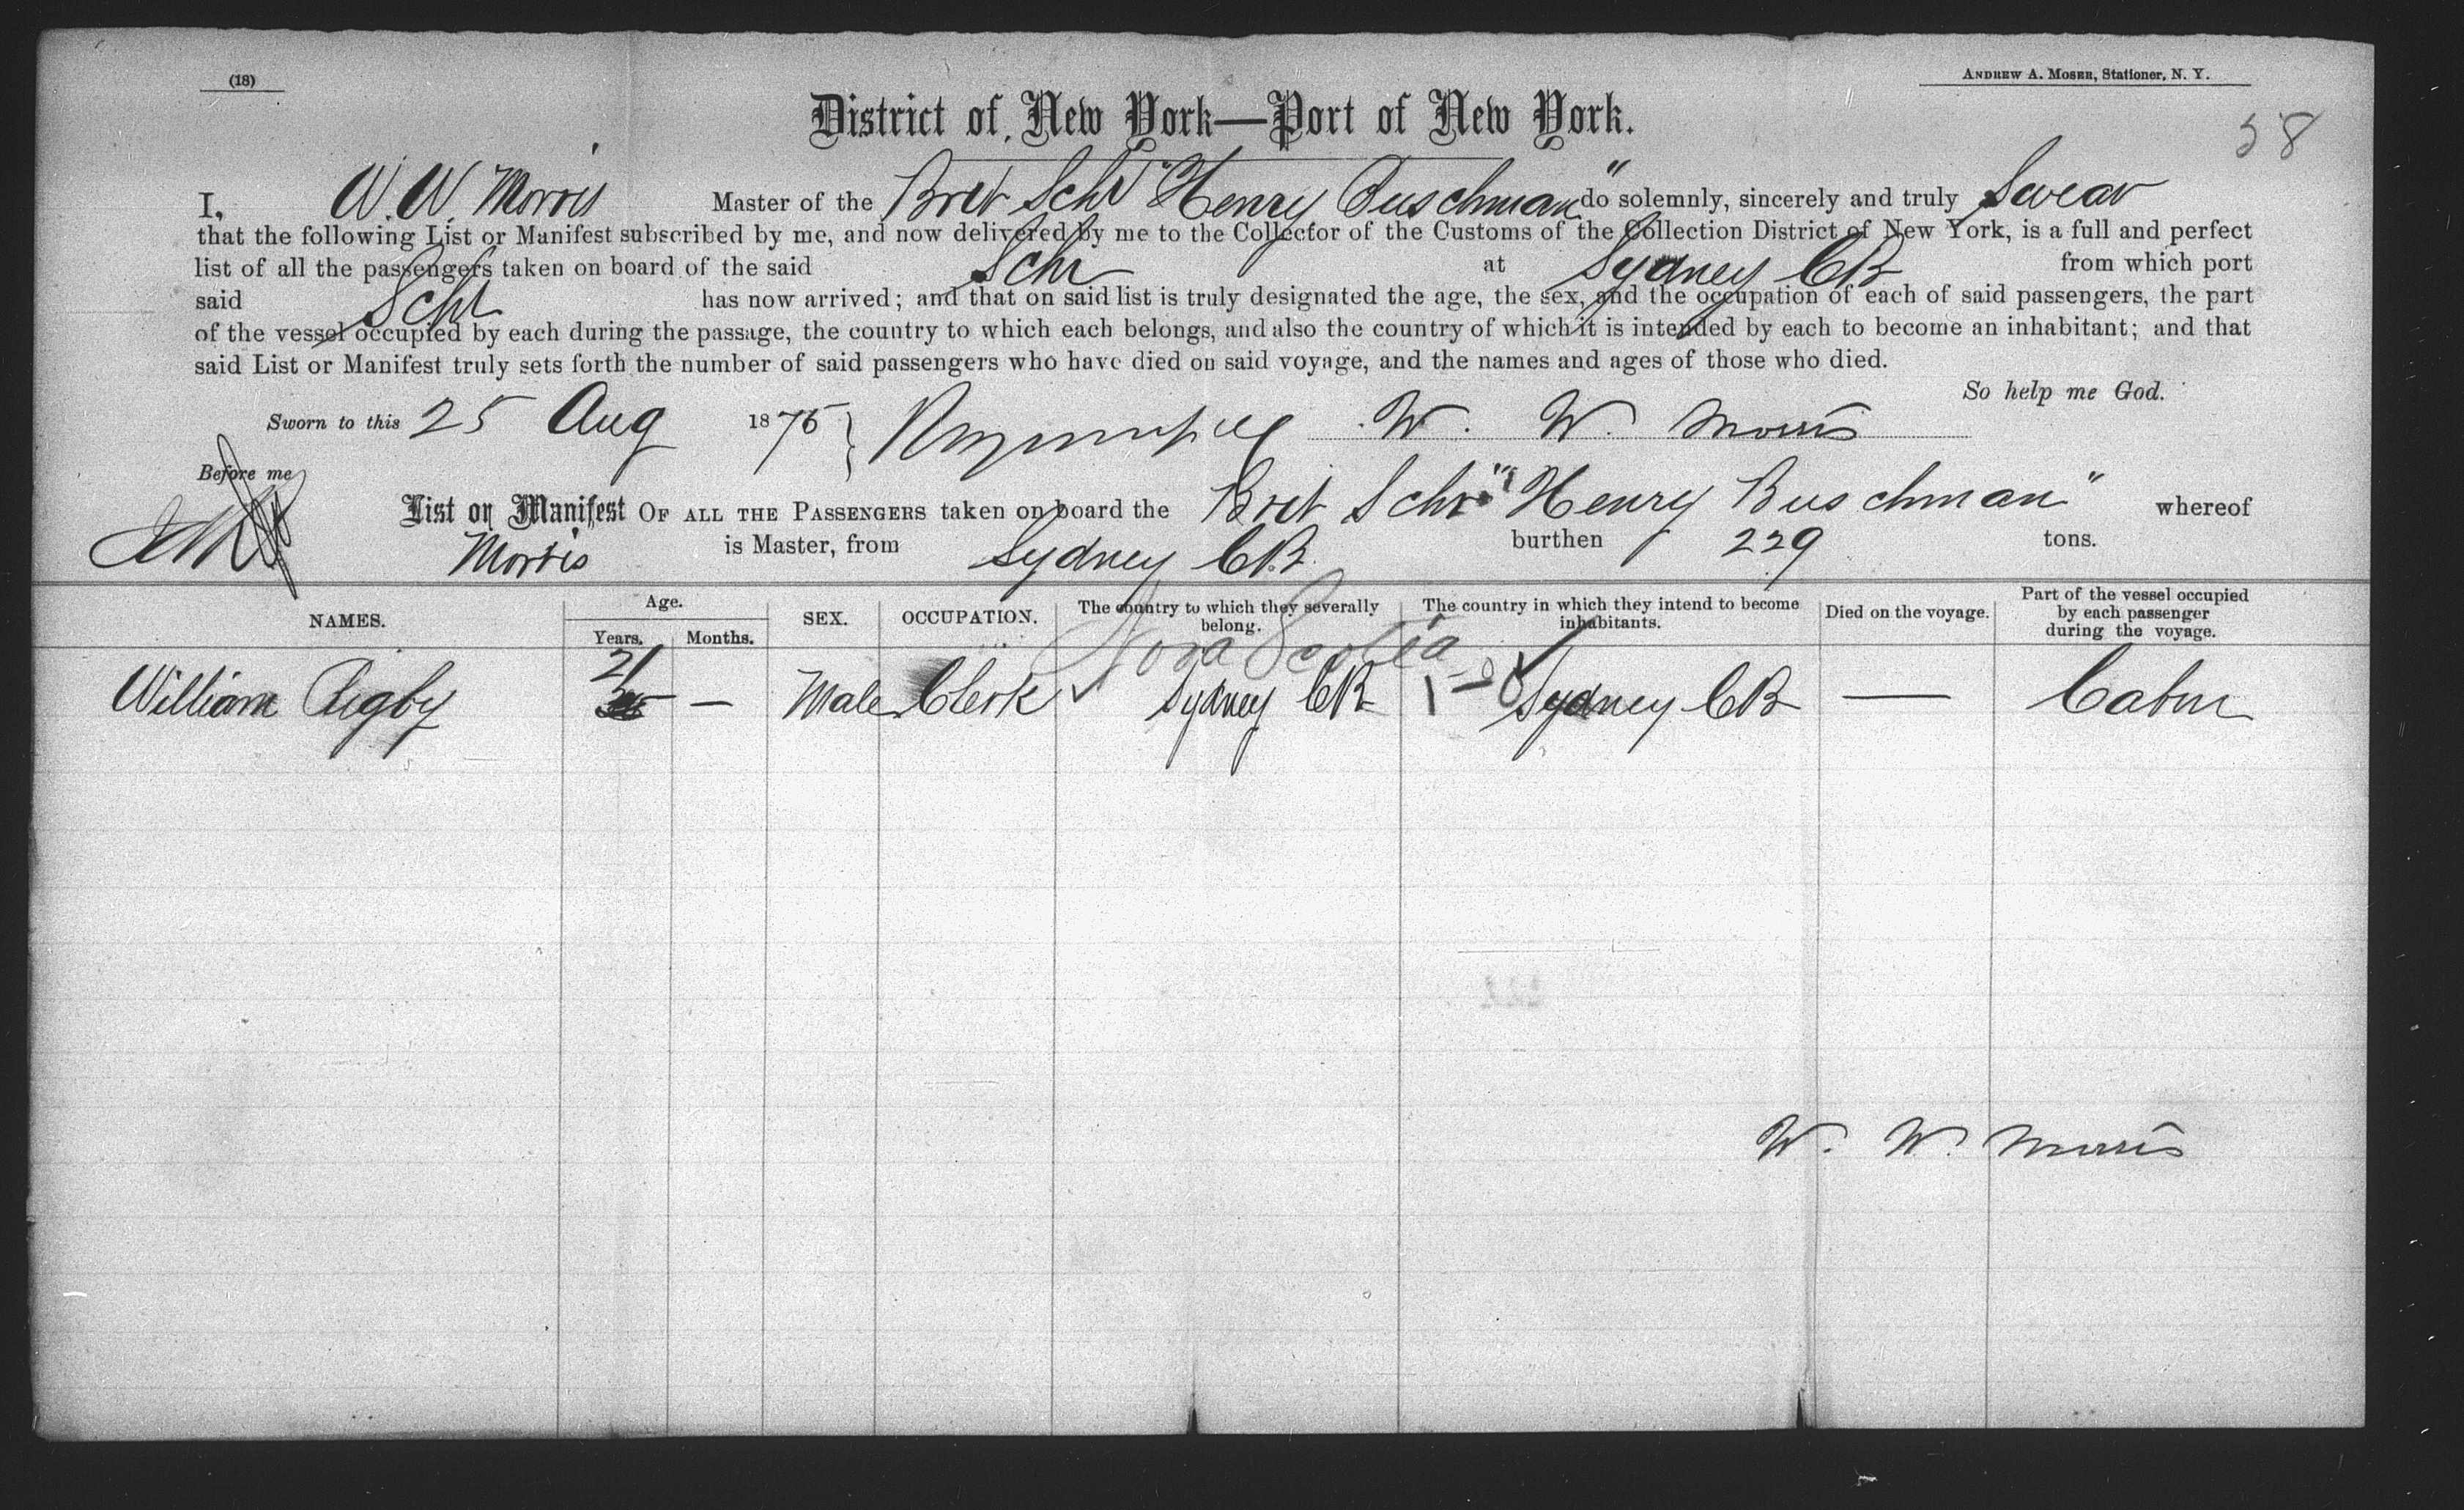 (18)
ANDREW A. MOSER, Stationer, N. Y.
District of New York—Port of New York.
58
I, W. W. Morris Master of the Brit Schr "Henry Buschman" do solemnly, sincerely and truly Swear
that the following List or Manifest subscribed by me, and now delivered by me to the Collector of the Customs of the Collection District of New York, is a full and perfect
list of all the passengers taken on board of the said Schr at Sydney CB from which port
said Schr has now arrived; and that on said list is truly designated the age, the sex, and the occupation of each of said passengers, the part
of the vessel occupied by each during the passage, the country to which each belongs, and also the country of which it is intended by each to become an inhabitant; and that
said List or Manifest truly sets forth the number of said passengers who have died on said voyage, and the names and ages of those who died.
So help me God.
Sworn to this 25 Aug 1875 } W. W. Morris
Before me
List or Manifest OF ALL THE PASSENGERS taken on board the Brit Schr "Henry Buschman" whereof
Morris is Master, from Sydney CB. burthen 229 tons.
NAMES. Age. Years. Months. SEX. OCCUPATION. The country to which they severally belong. The country in which they intend to become inhabitants. Died on the voyage. Part of the vessel occupied by each passenger during the voyage.
Nova Scotia
William Rigby 21 — Male Clerk Sydney CB Sydney CB — Cabin
W. W. Morris